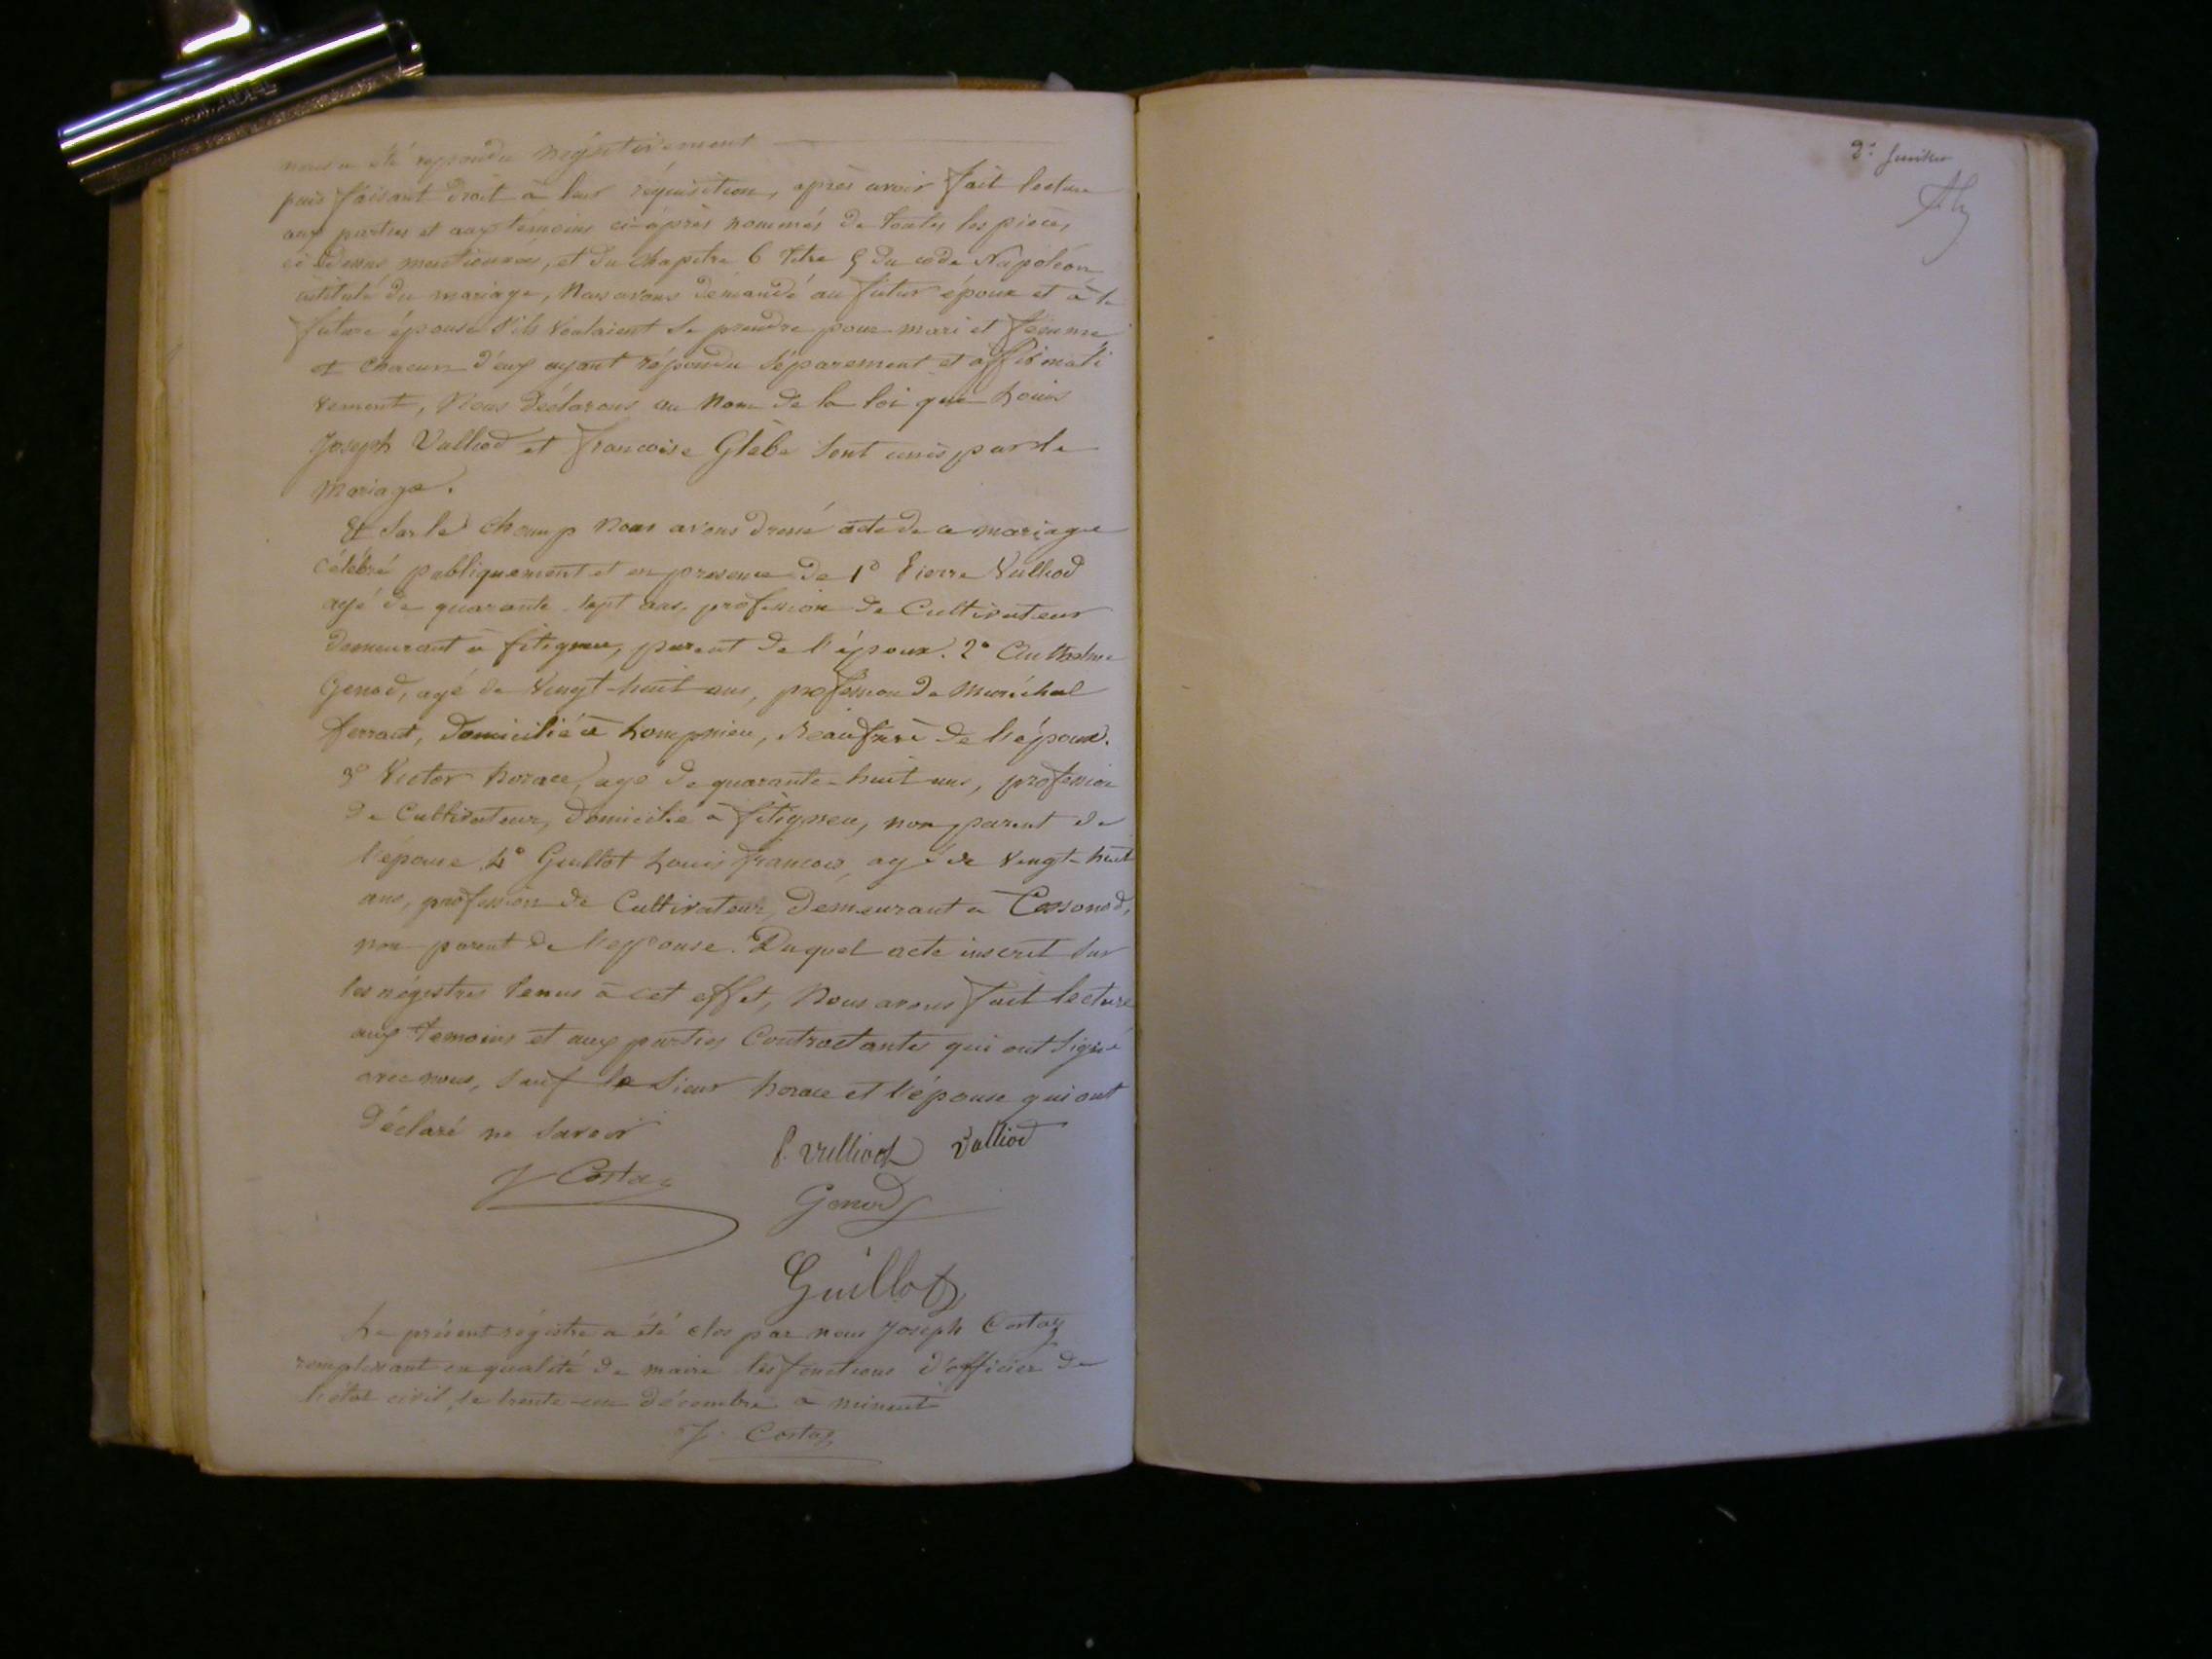 nous a été repondu négativement
puis faisant droit à leur réquisition, après avoir fait lecture
aux parties et aux témoins ci-après nommés de toutes les pièces,
ci dessus mentionnées, et du chapitre 6 titre 5 du code Napoléon
intitulé du mariage, Nous avons demandé au futur époux et à la
future épouse s'ils voulaient se prendre pour mari et femme
et chacun d'eux ayant répondu séparement et affirmati
vement, Nous déclarons au Nom de la loi que Louis
Joseph Vulliod et francoise Glèbe sont unis par le
Mariage.
Et sur le champ Nous avons dressé acte de ce mariage
célébré publiquement et en presence de 1° Pierre Vulliod
agé de quarante-sept ans, profession de Cultivateur
demeurant à fitignieu, parent de l'époux. 2° Anthelme
Genod, agé de vingt-huit ans, profession de Maréchal
ferrant, domicilié à Lompnieu, Beaufrère de l'époux.
3° Victor horace, agé de quarante-huit ans, profession
de Cultivateur, domicilié à fitignieu, non parent de
l'épouse 4° Guillot Louis francois, agé de vingt-huit
ans, profession de Cultivateur, demeurant a Cossonod,
non parent de l'epouse. Duquel acte inscrit sur
les régistres tenus à cet effet, Nous avons fait lecture
aux temoins et aux parties Contractantes qui ont signé
avec nous, sauf le Sieur horace et l'épouse qui ont
Déclaré ne Savoir
P. Vulliod Vulliod
J Costaz
Genod
Guillot
Le présent régistre a été clos par nous Joseph Costaz
remplissant en qualité de maire les fonctions d'officier de
l'état civil, le trente-un décembre à minuit
J. Costaz
2e feuillet